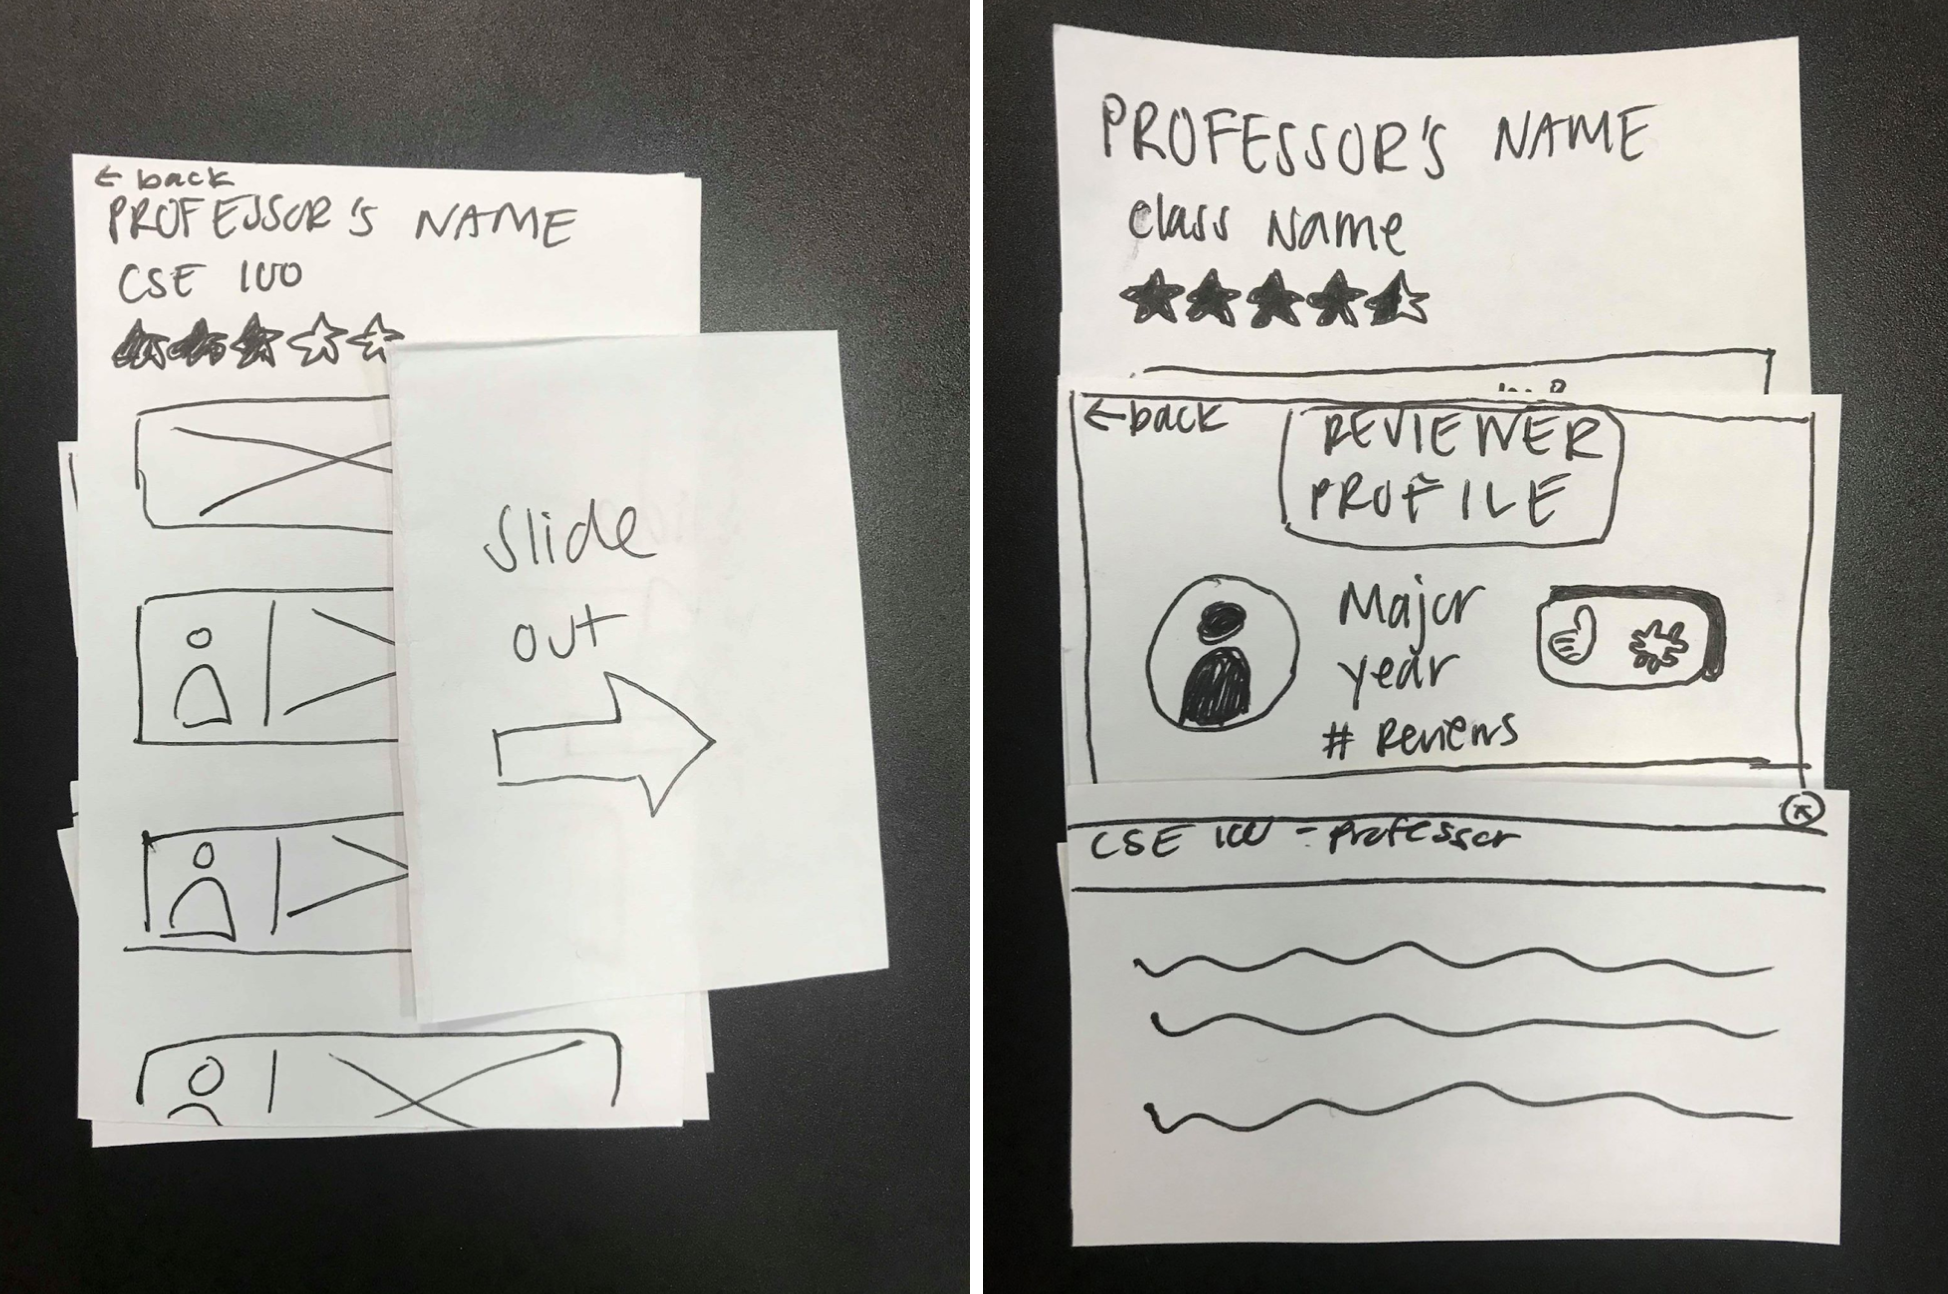 ← back
PROFESSOR'S NAME
CSE 100
slide
out
PROFESSOR'S NAME
class Name
← back
REVIEWER
PROFILE
Major
year
# Reviews
CSE 100 - professor